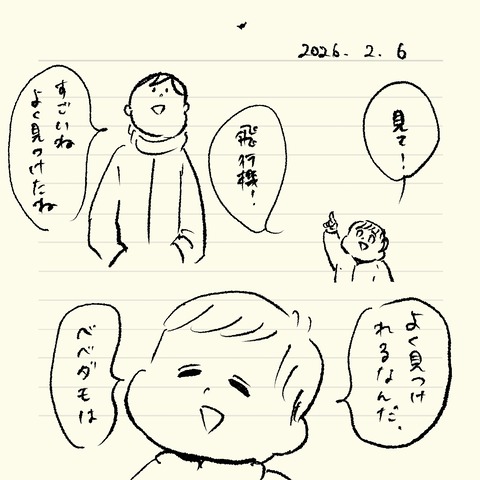 2026. 2. 6
見て!
飛行機!
すごいね
よく見つけたね
よく見つけ
れるなんだ。
ベベダモは